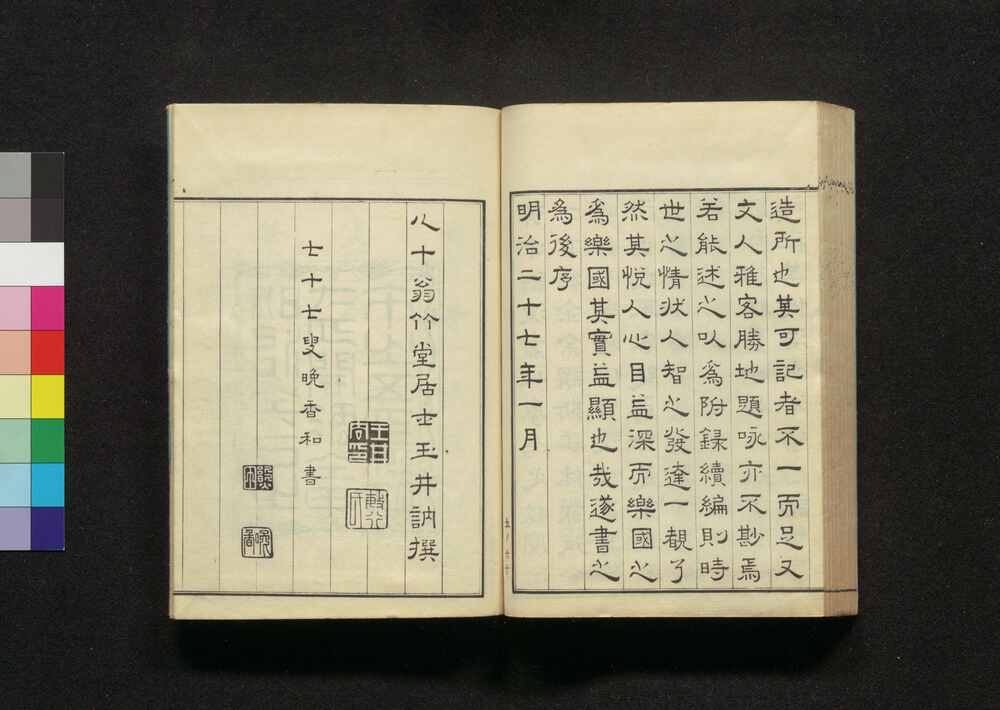 造所也其可記者不一而足又
文人雅客勝地題咏亦不尠焉
若能述之以為附録續編則時
世之情狀人智之發達一覩了
然其悦人心目益深而樂國之
為樂國其實益顯也哉遂書之
為後序
明治二十七年一月
八十翁竹堂居士玉井訥撰
七十七叟晩香和書